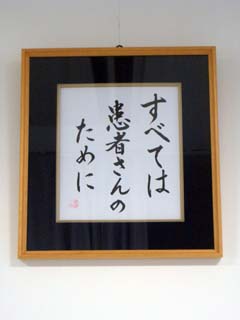 すべては
患者さんの
ために